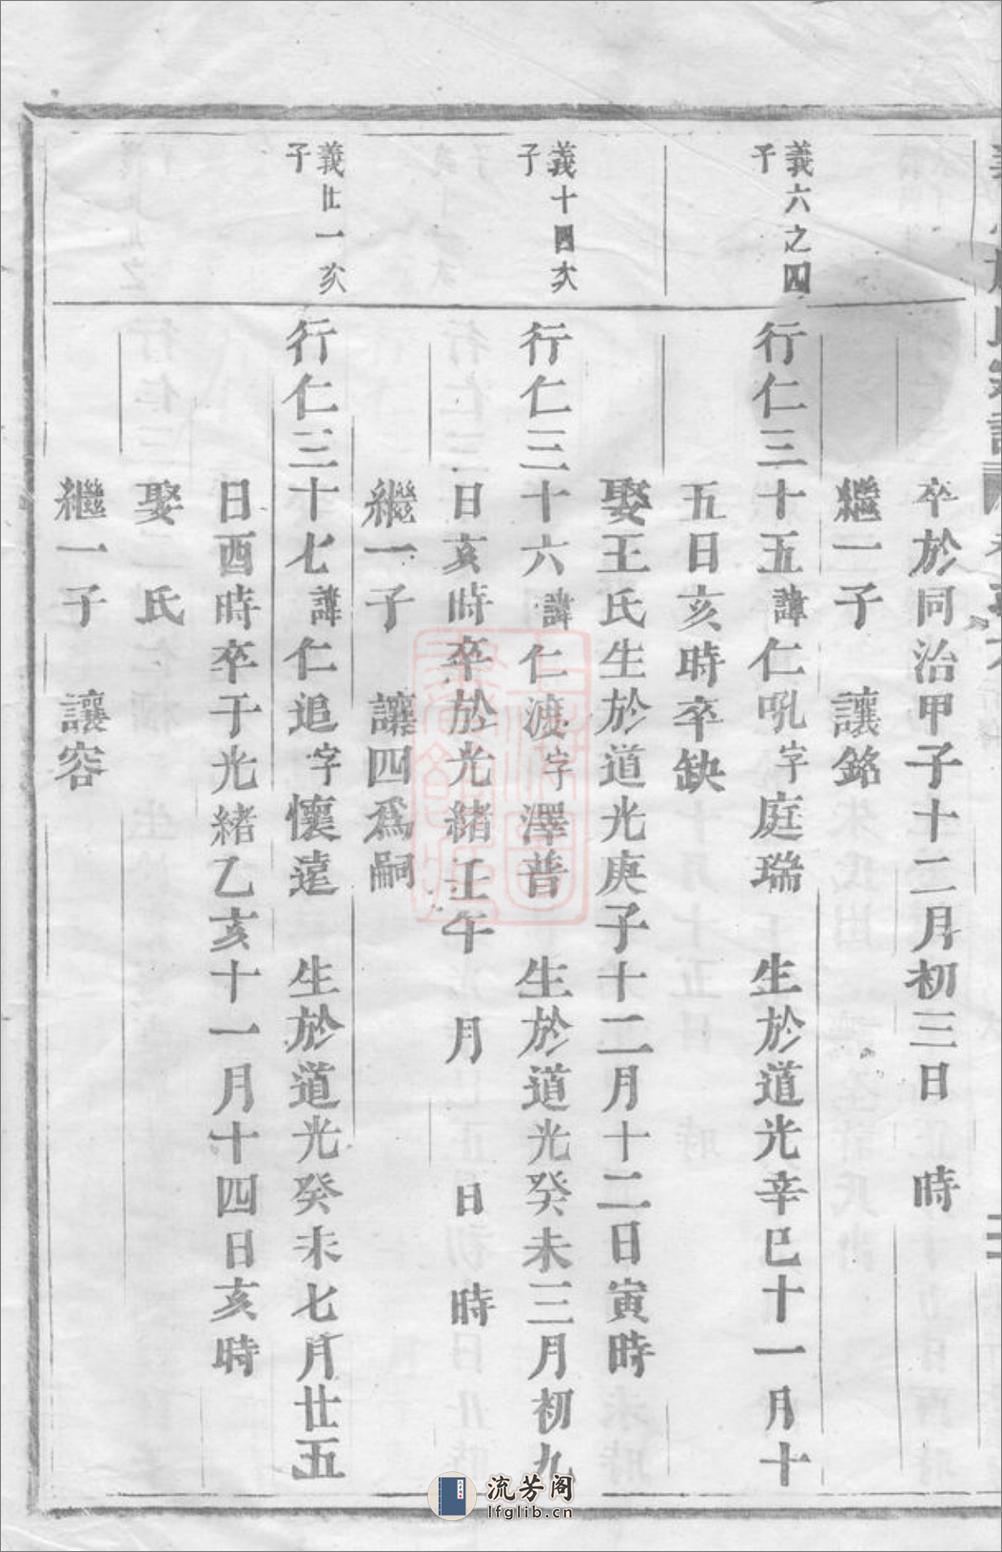 卒於同治甲子十二月初三日 時
繼一子 讓銘
義六之四子
行仁三十五諱仁吼字庭瑞 生於道光辛巳十一月十
五日亥時卒缺
娶王氏生於道光庚子十二月十二日寅時
義十四次子
行仁三十六諱仁渡字澤普 生於道光癸未三月初九
日亥時卒於光緒壬午 月 日 時
繼一子 讓四為嗣
義廿一次子
行仁三十七諱仁追字懷遠 生於道光癸未七月廿五
日酉時卒于光緒乙亥十一月十四日亥時
娶 氏
繼一子 讓容
流芳阁
lfglib.cn